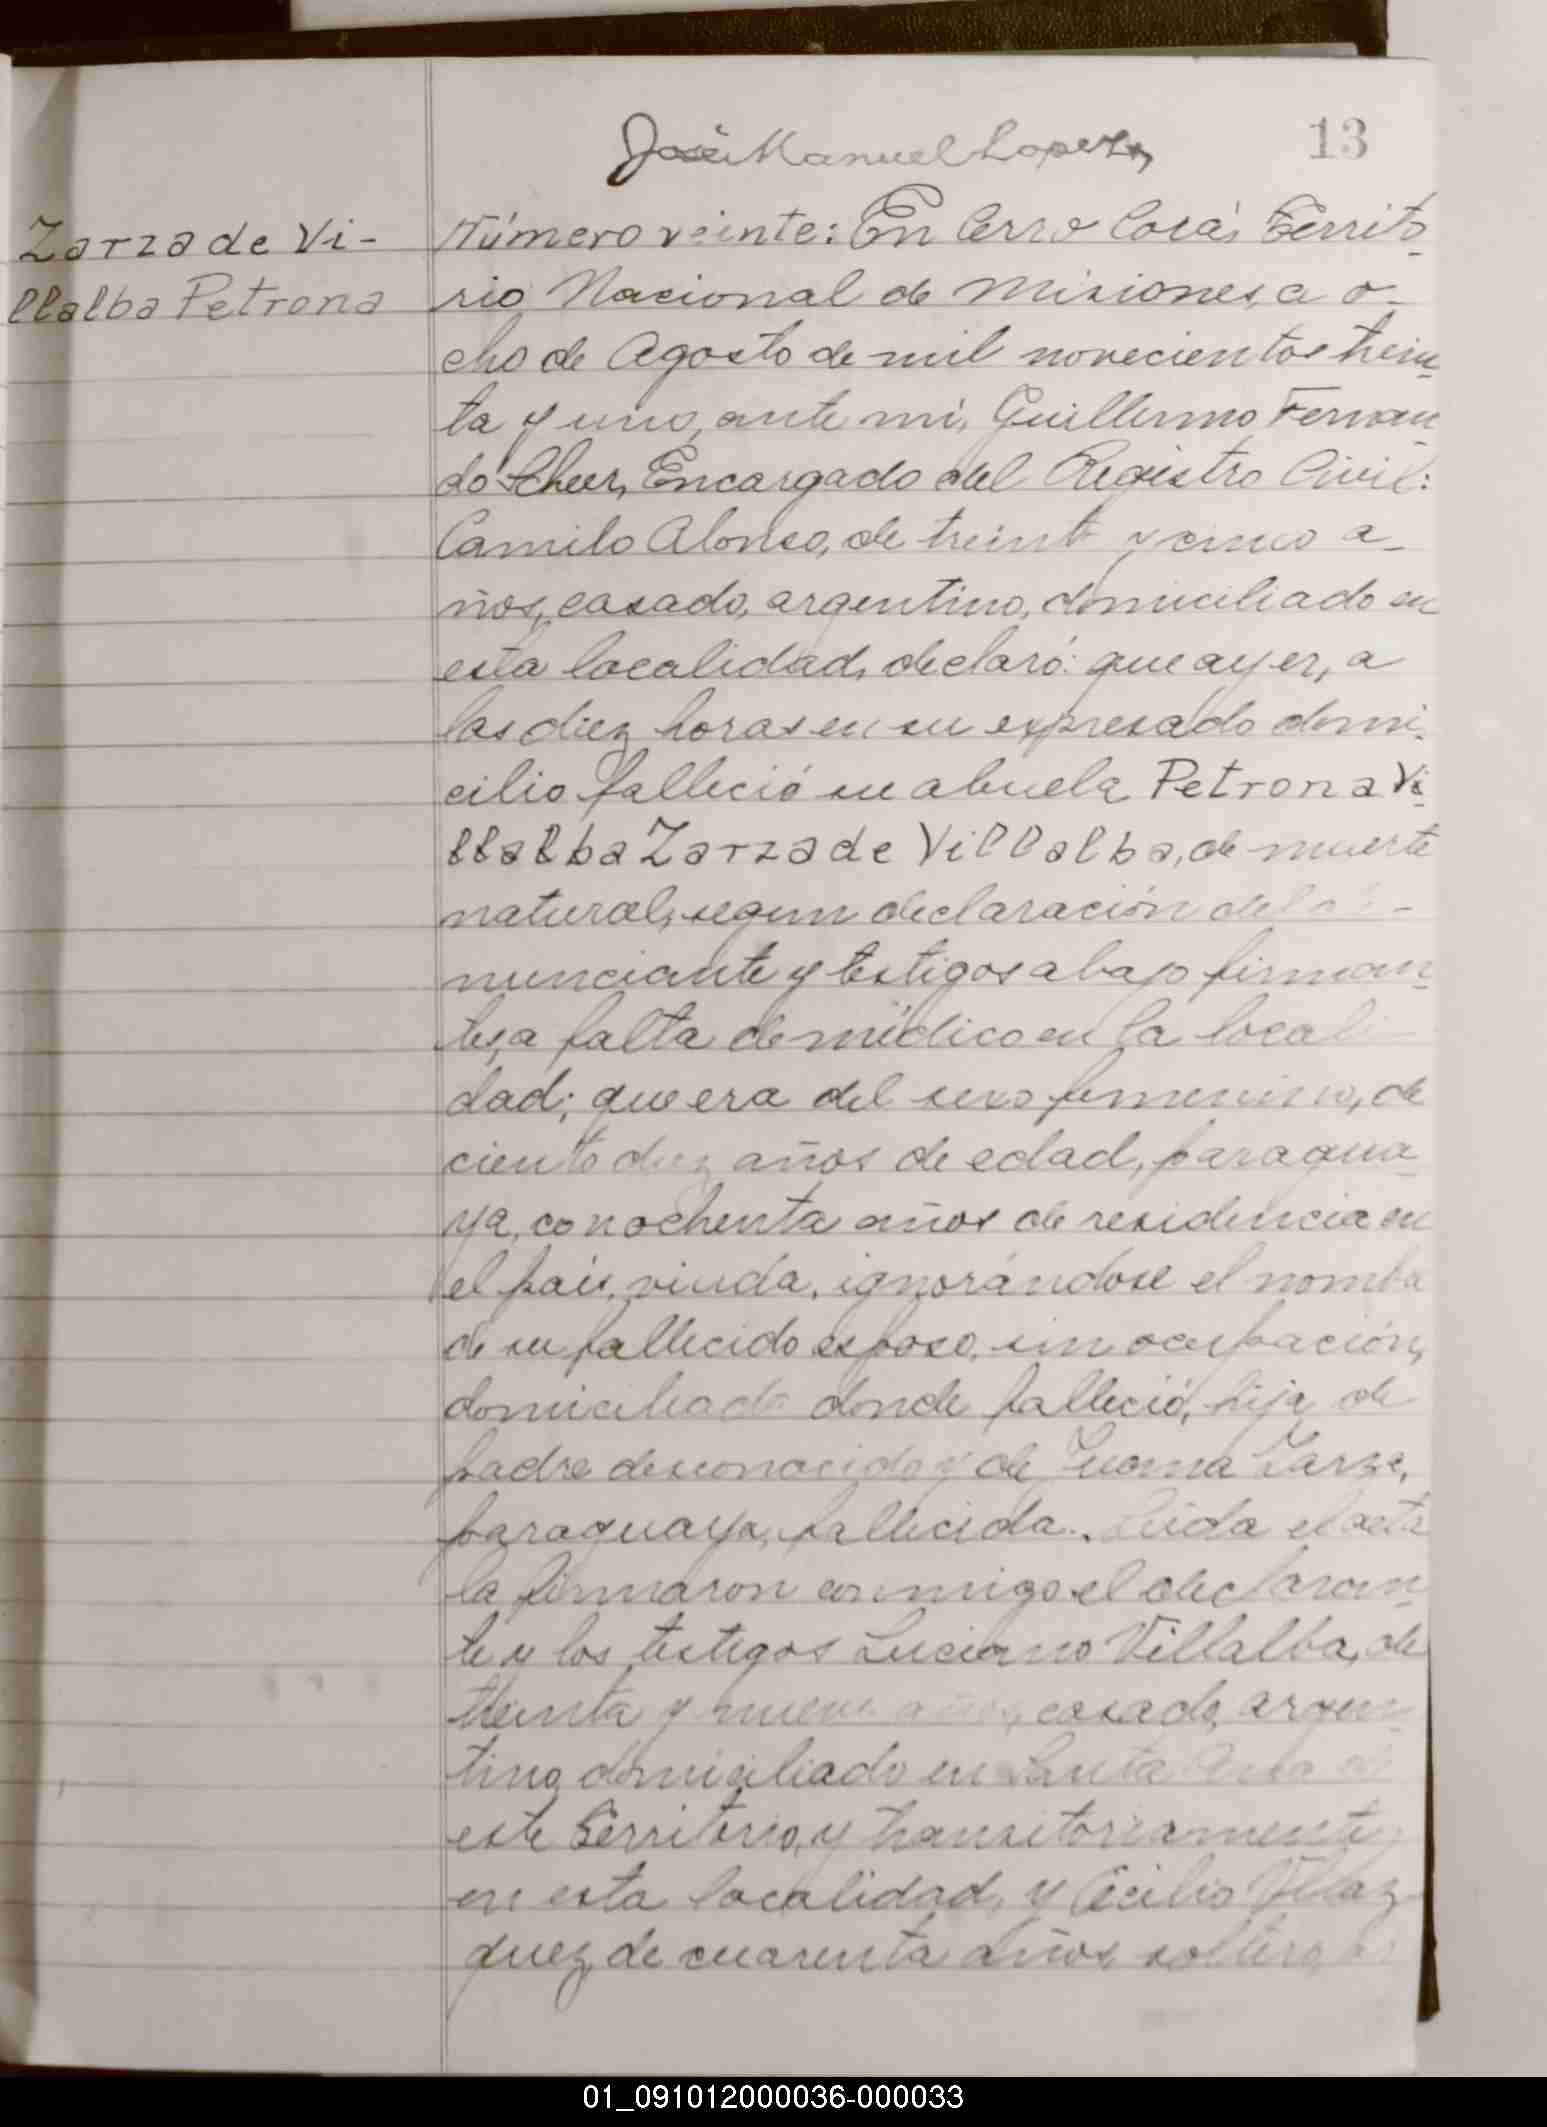 José Manuel Lopez
13
Zarza de Vi-
llalba Petrona
Número veinte: En Cerro Corá, Territo-
rio Nacional de Misiones, a o-
cho de Agosto de mil novecientos trein-
ta y uno, ante mi, Guillermo Fernan-
do Scheer, Encargado del Registro Civil:
Camilo Alonso, de treinta y cinco a-
ños, casado, argentino, domiciliado en
esta localidad, declaró: que ayer, a
las diez horas en su expresado domi-
cilio falleció su abuela Petrona Vi-
llalba Zarza de Villalba, de muerte
natural, segun declaración del
nunciante y testigos abajo firman-
tes, a falta de médico en la locali-
dad; que era del sexo femenino, de
ciento diez años de edad, paragua-
ya, con ochenta años de residencia en
el país, viuda, ignorándose el nombre
de su fallecido esposo, sin ocupación,
domiciliada donde falleció, hija de
padre desconocido y de Juana Zarza,
paraguaya, fallecida. Leida el acta
la firmaron conmigo el declaran-
te y los testigos Luciano Villalba, de
treinta y nueve años, casado, argen-
tino, domiciliado en Santa Ana de
este Territorio, y transitoriamente
en esta localidad, y Cecilio Velaz-
quez, de cuarenta años, soltero,
01_091012000036-000033